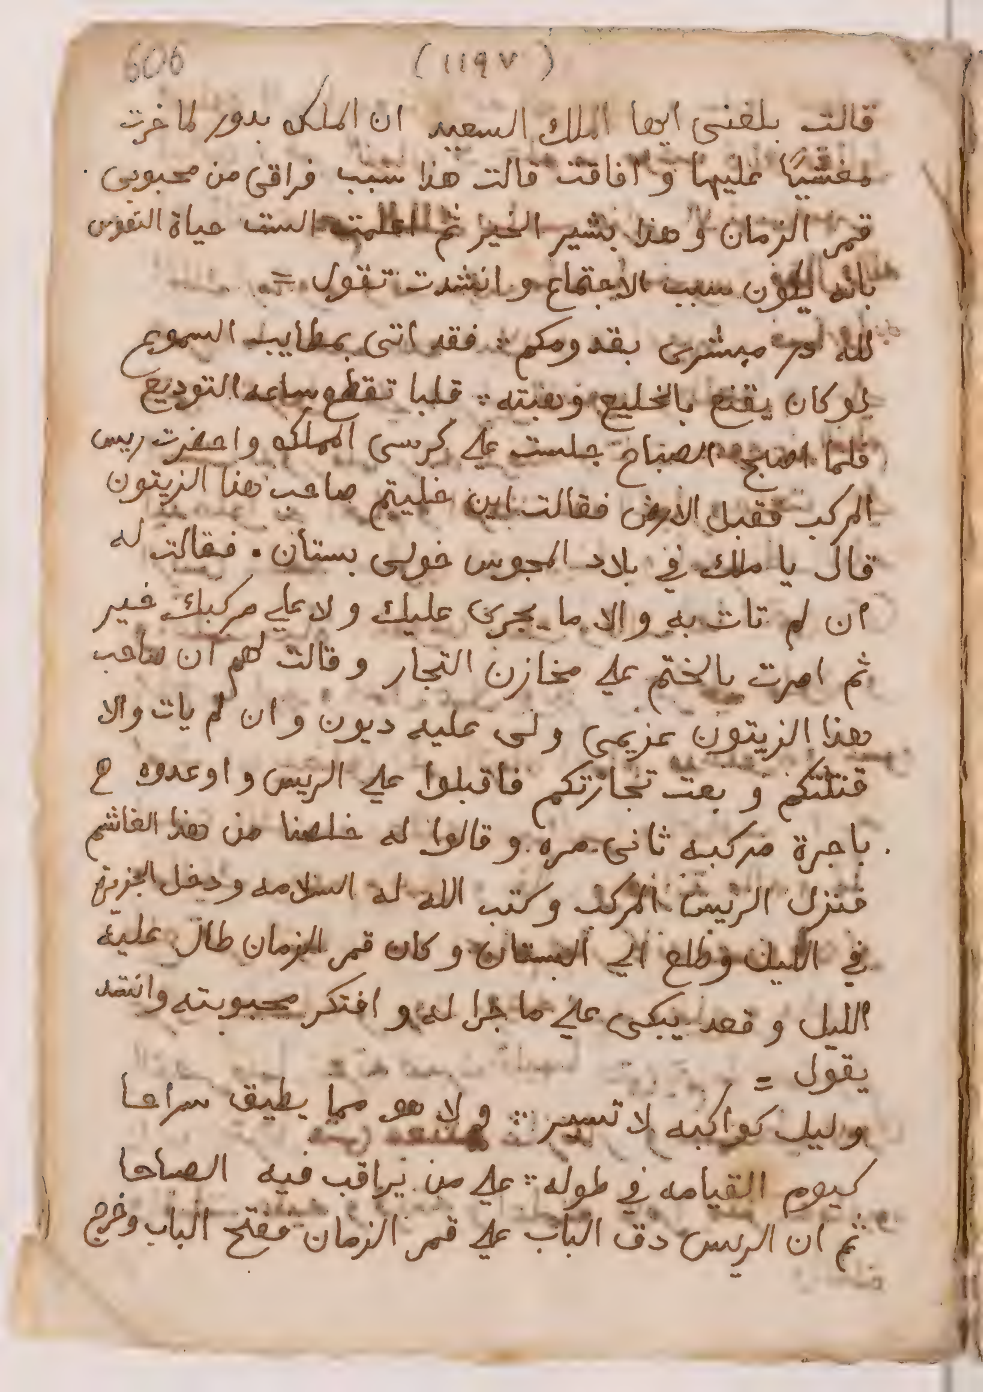 606 (١١٩٧)
قالت بلغنى ايها الملك السعيد ان الملكه بدور لما خرت
مغشيًا عليها و افاقت قالت هذا سبب فراقى من محبوبى
قمر الزمان و هذا بشير الخير ثم اعلمت الست حياة النفوس
بانه يكون سبب الاجتماع و انشدت تقول =
لله در مبشرى بقدومكم فقد اتى بمطايب السموع
لو كان يقنع بالخليع وهبته قلبا تقطع ساعه التوديع
فلما اصبح الصباح جلست على كرسى المملكه واحضرت ريس
المركب فقبل الارض فقالت اين خليتم صاحب هذا الزيتون
قال يا ملك في بلاد المجوس خولى بستان . فقالت له
ان لم تات به والا ما يجرى عليك و لا على مركبك خير
ثم امرت بالختم على مخازن التجار و قالت لهم ان صاحب
هذا الزيتون غريمى و لى عليه ديون و ان لم يات والا
قتلتكم و بعت تجارتكم فاقبلوا على الريس و اوعدوه
باجرة مركبه ثانى مره و قالوا له خلصنا من هذا الغاشم
فنزل الريس المركب وكتب الله له السلامه ودخل الجزيره
في الليل وطلع الي البستان و كان قمر الزمان طال عليه
الليل و قعد يبكى على ما جرا له و افتكر محبوبته وانشد
يقول =
وليل كواكبه لا تسير و لا هو مما يطيق سراحا
كيوم القيامه في طوله على من يراقب فيه الصباحا
ثم ان الريس دق الباب على قمر الزمان ففتح الباب وخرج